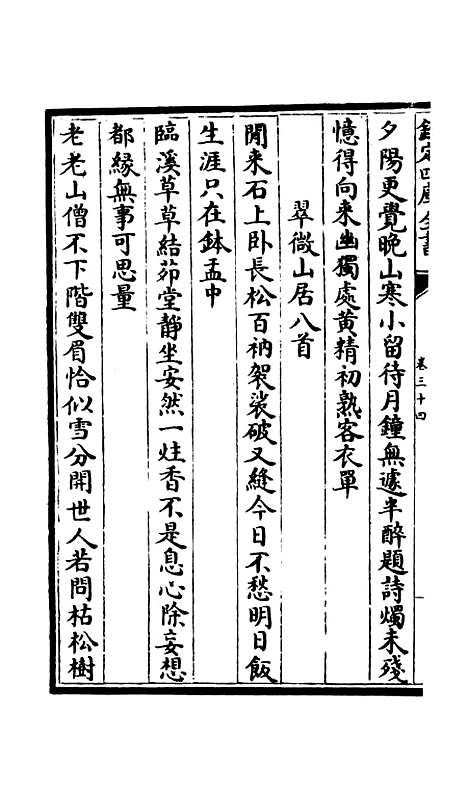 欽定四庫全書
卷三十四
夕陽更覺晚山寒小留待月鐘無遽半醉題詩燭未殘
憶得向来幽獨處黄精初熟客衣單
翠微山居八首
閒来石上卧長松百衲袈裟破又縫今日不愁明日飯
生涯只在鉢盂中
臨溪草草結茆堂静坐安然一炷香不是息心除妄想
都緣無事可思量
老老山僧不下階雙眉恰似雪分開世人若問枯松樹